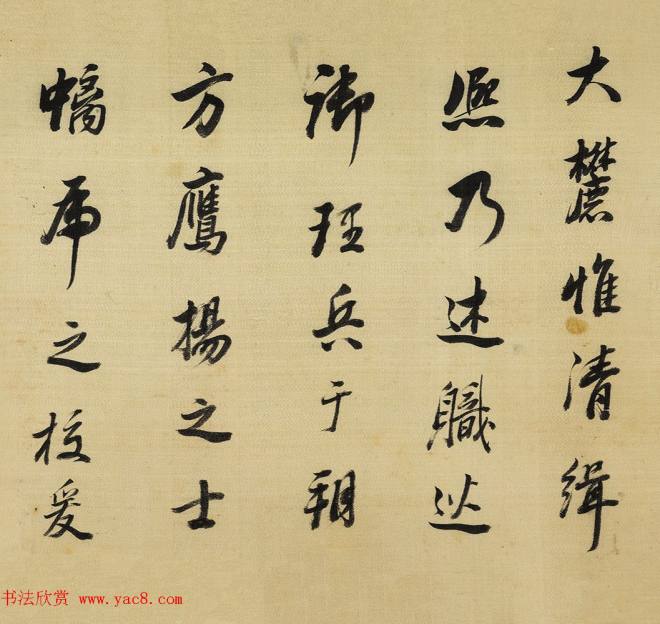 大麓惟清緝
熙乃述職
兵于朔
方鷹揚之士
虎之校爰
书法欣赏 www.yac8.com